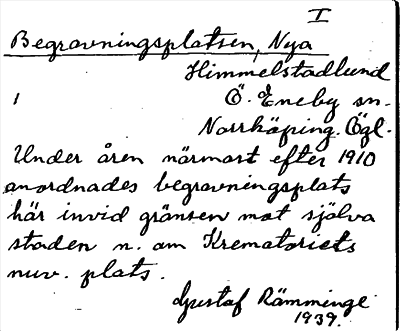 I
Begravningsplatsen, Nya
Himmelstadlund
1 Ö. Eneby sn.
Norrköping. Ögl.
Under åren närmast efter 1910
anordnades begravningsplats
här invid gränsen mot själva
staden n. om Krematoriets
nuv. plats.
Gustaf Rämminge
1939.